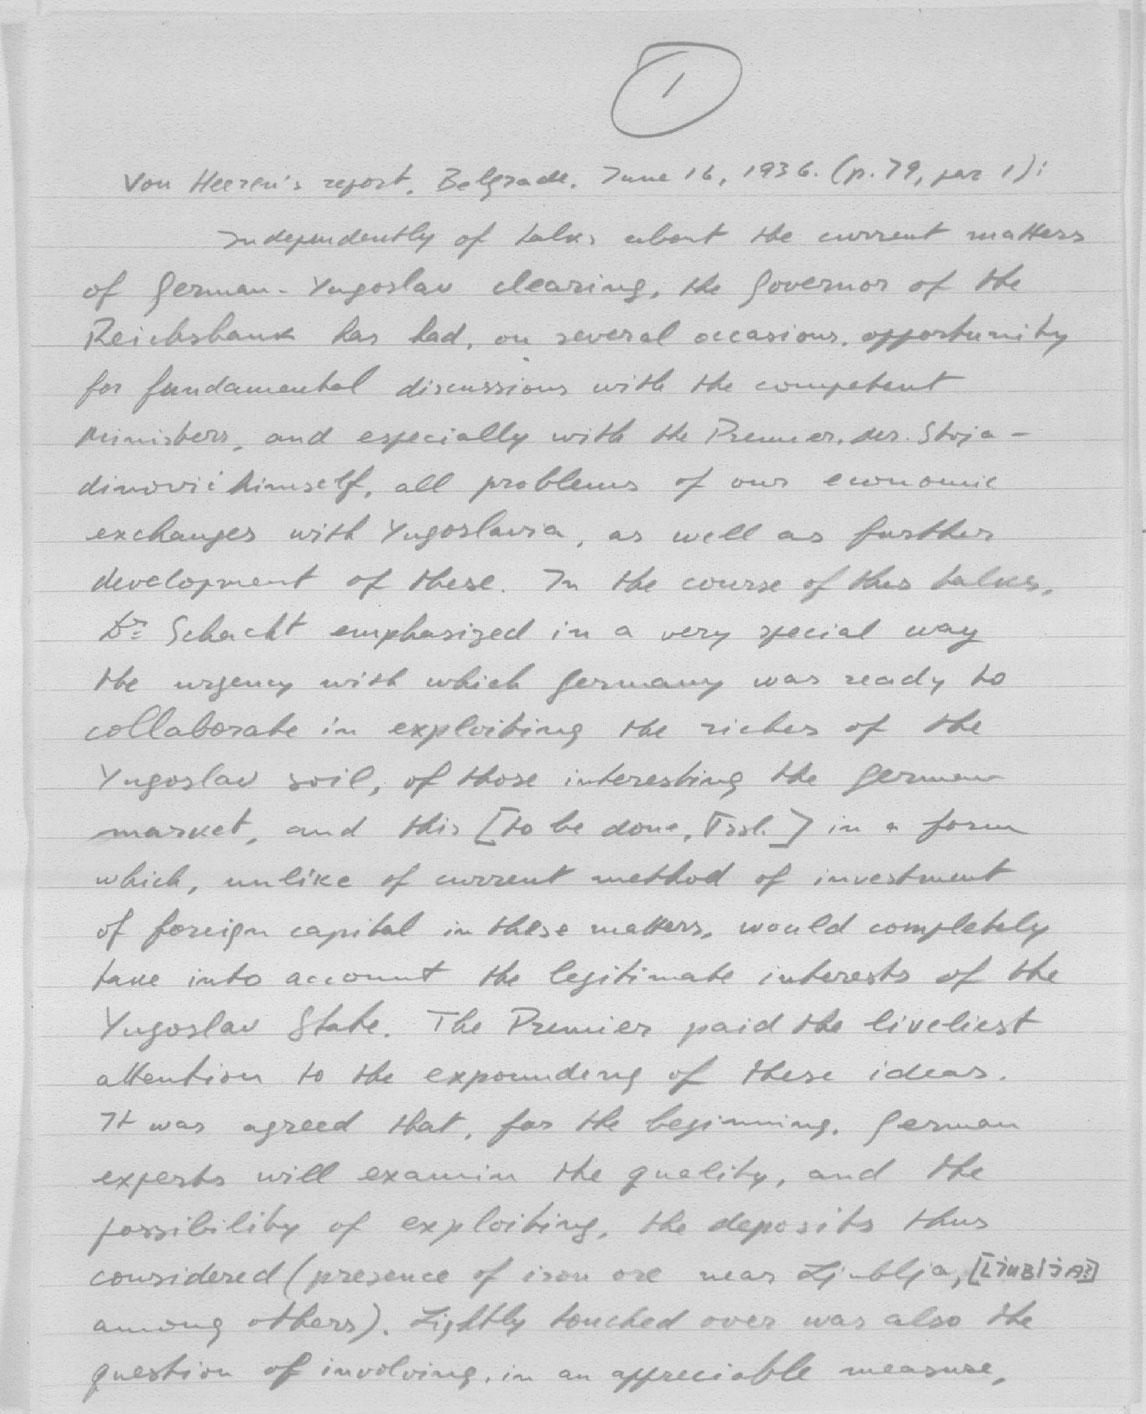 1
Von Heeren's report. Belgrade. June 16, 1936. (p. 79, par 1):
Independently of talks about the current matters
of German-Yugoslav clearing, the Governor of the
Reichsbank has had, on several occasions, opportunity
for fundamental discussions with the competent
Ministers, and especially with the Premier, Mr. Stoja-
dinović himself, all problems of our economic
exchanges with Yugoslavia, as well as further
development of these. In the course of thus talks,
Dr Schacht emphasized in a very special way
the urgency with which Germany was ready to
collaborate in exploiting the riches of the
Yugoslav soil, of those interesting the German
market, and this [to be done, Trsl.] in a form
which, unlike of current method of investment
of foreign capital in these matters, would completely
take into account the legitimate interests of the
Yugoslav State. The Premier paid the liveliest
attention to the expounding of these ideas.
It was agreed that, for the beginning, German
experts will examin the quality, and the
possibility of exploiting, the deposits thus
considered (presence of iron ore near Ljublja, [LjuBljA?]
among others). Lightly touched over was also the
question of involving, in an appreciable measure,